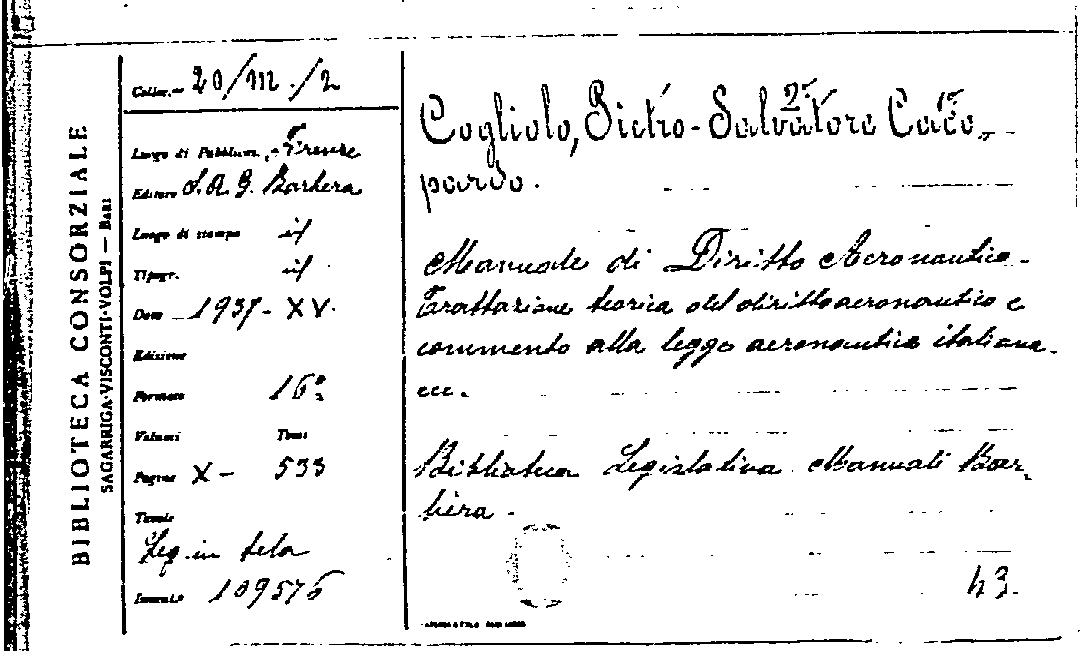 BIBLIOTECA CONSORZIALE
SAGARRIGA-VISCONTI-VOLPI — BARI
Colloc.— 20/III./2
Luogo di Pubblicaz. - Firenze
Editore S.A.G. Barbèra
Luogo di stampa id
Tipogr. id
Data 1937-XV.
Edizione
Formato 16º
Volumi Tomi
Pagine X- 533
Tavole
Leg. in tela
Inventº 109576
Cogliolo, Pietro - Salvatore Caco-
pardo.
2º 1º
Manuale di Diritto Aeronautico -
Trattazione teorica del diritto aeronautico e
commento alla legge aeronautica italiana.
ecc.
Biblioteca Legislativa Manuali Bar-
bèra.
43.